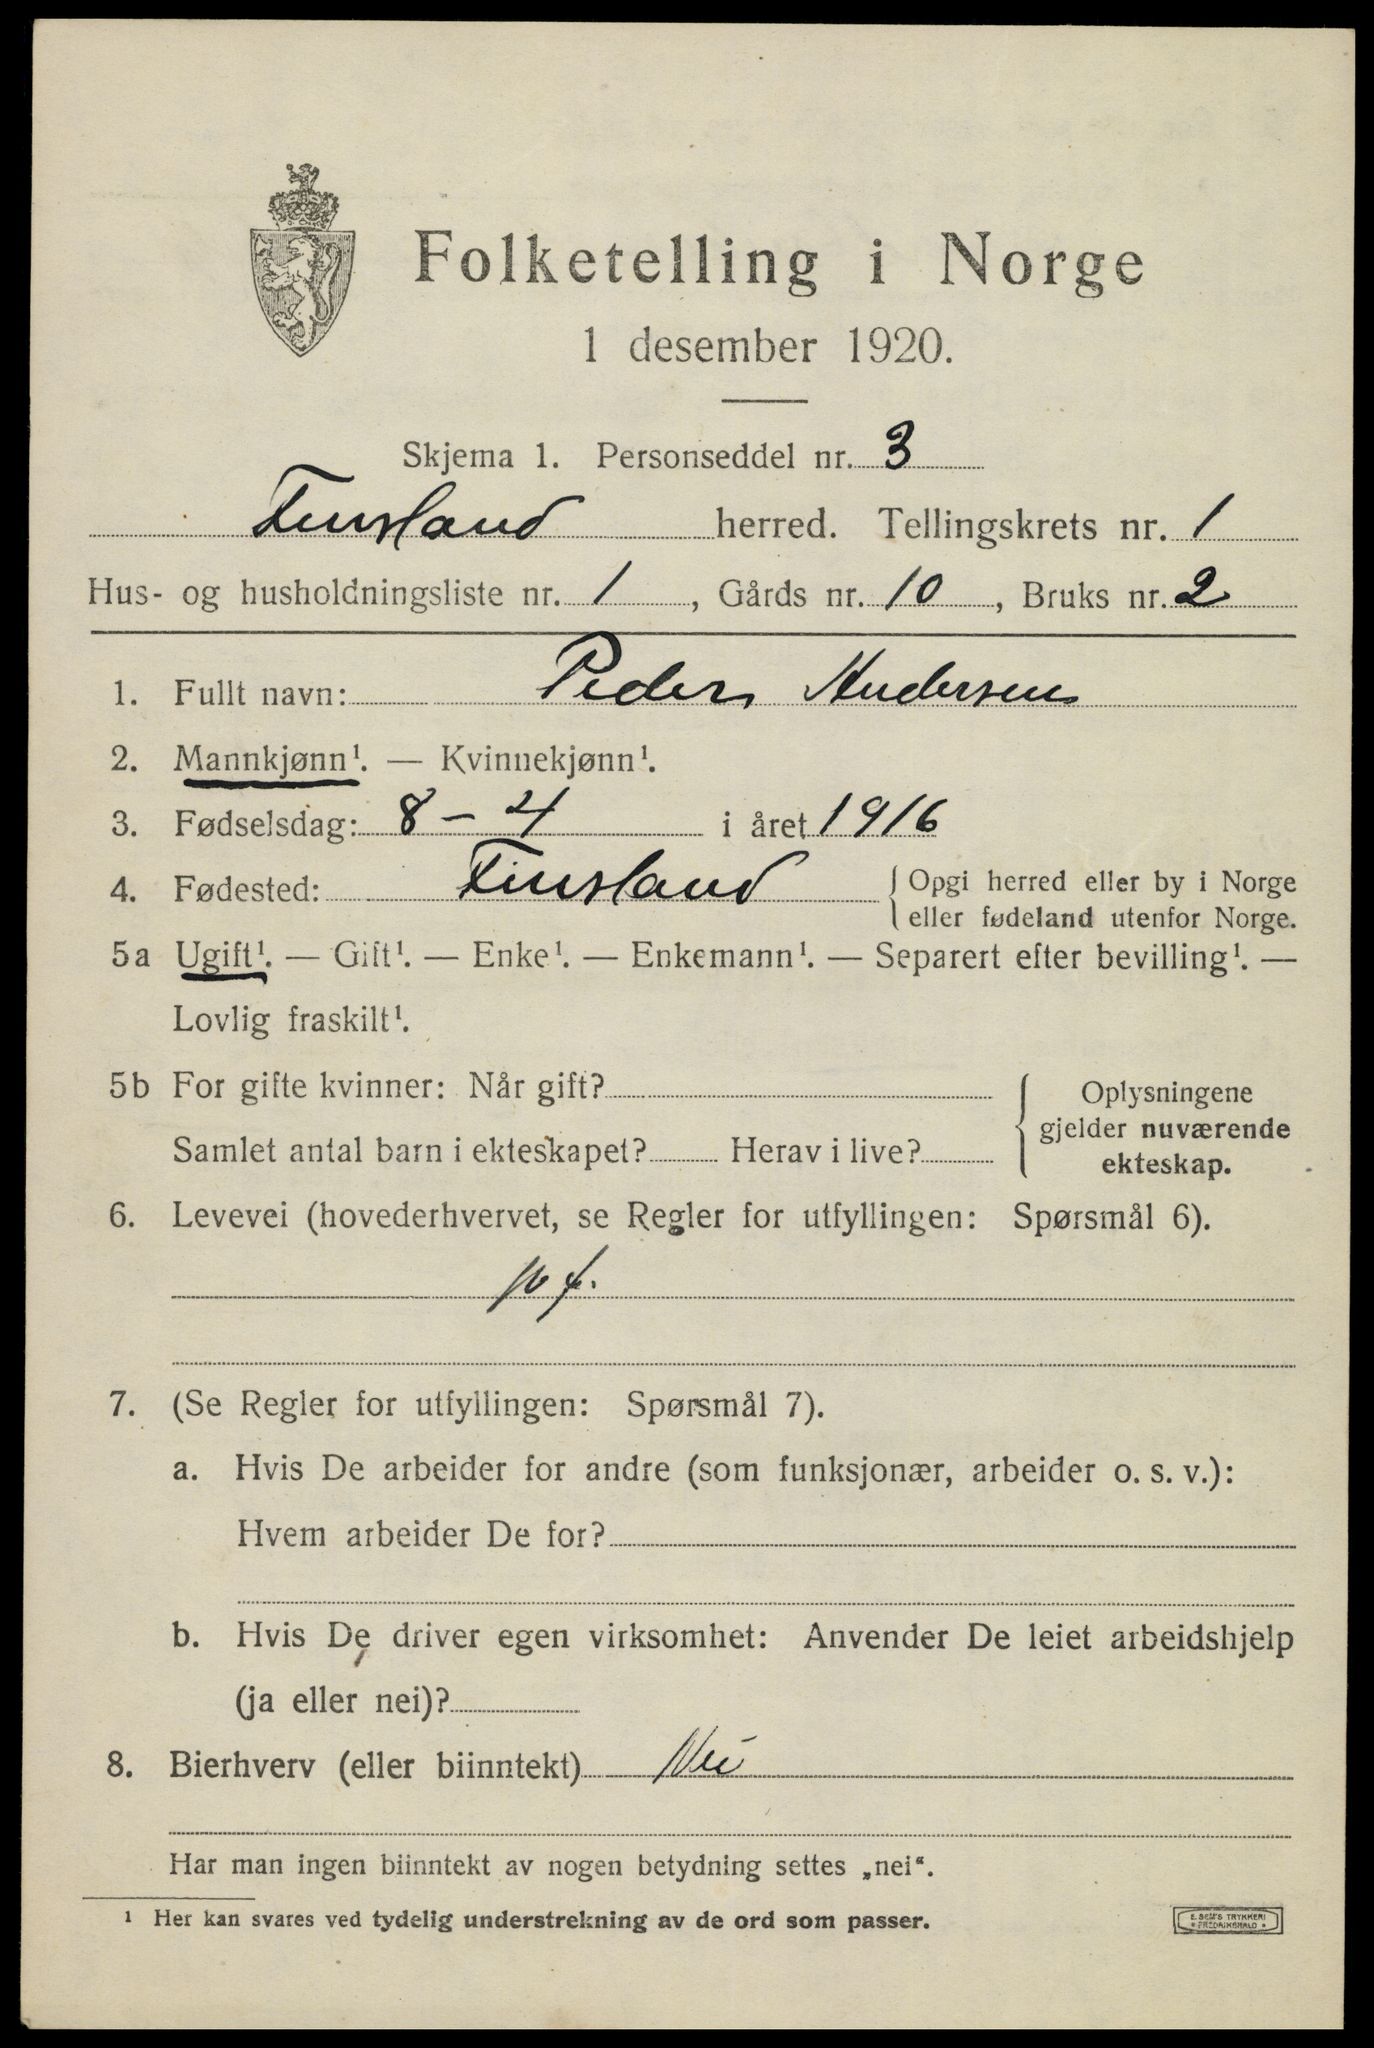 Folketelling i Norge
1 desember 1920.
Skjema 1. Personseddel nr. 3
Finsland herred. Tellingskrets nr. 1
Hus- og husholdningsliste nr. 1, Gårds nr. 10, Bruks nr. 2
1. Fullt navn: Peder Andersen
2. Mannkjønn¹. — Kvinnekjønn¹.
3. Fødselsdag: 8 – 4 i året 1916
4. Fødested: Finsland {Opgi herred eller by i Norge
eller fødeland utenfor Norge.
5a Ugift¹. — Gift¹. — Enke¹. — Enkemann¹. — Separert efter bevilling¹. —
Lovlig fraskilt¹.
5b For gifte kvinner: Når gift? { Oplysningene
gjelder nuværende
Samlet antal barn i ekteskapet? Herav i live?
ekteskap.
6. Levevei (hovederhvervet, se Regler for utfyllingen: Spørsmål 6).
7. (Se Regler for utfyllingen: Spørsmål 7).
a. Hvis De arbeider for andre (som funksjonær, arbeider o. s. v.):
Hvem arbeider De for?
b. Hvis De driver egen virksomhet: Anvender De leiet arbeidshjelp
(ja eller nei)?
8. Bierhverv (eller biinntekt) Nei
Har man ingen biinntekt av nogen betydning settes „nei“.
¹ Her kan svares ved tydelig understrekning av de ord som passer.
E. SEM'S TRYKKERI
* FREDRIKSHALD *